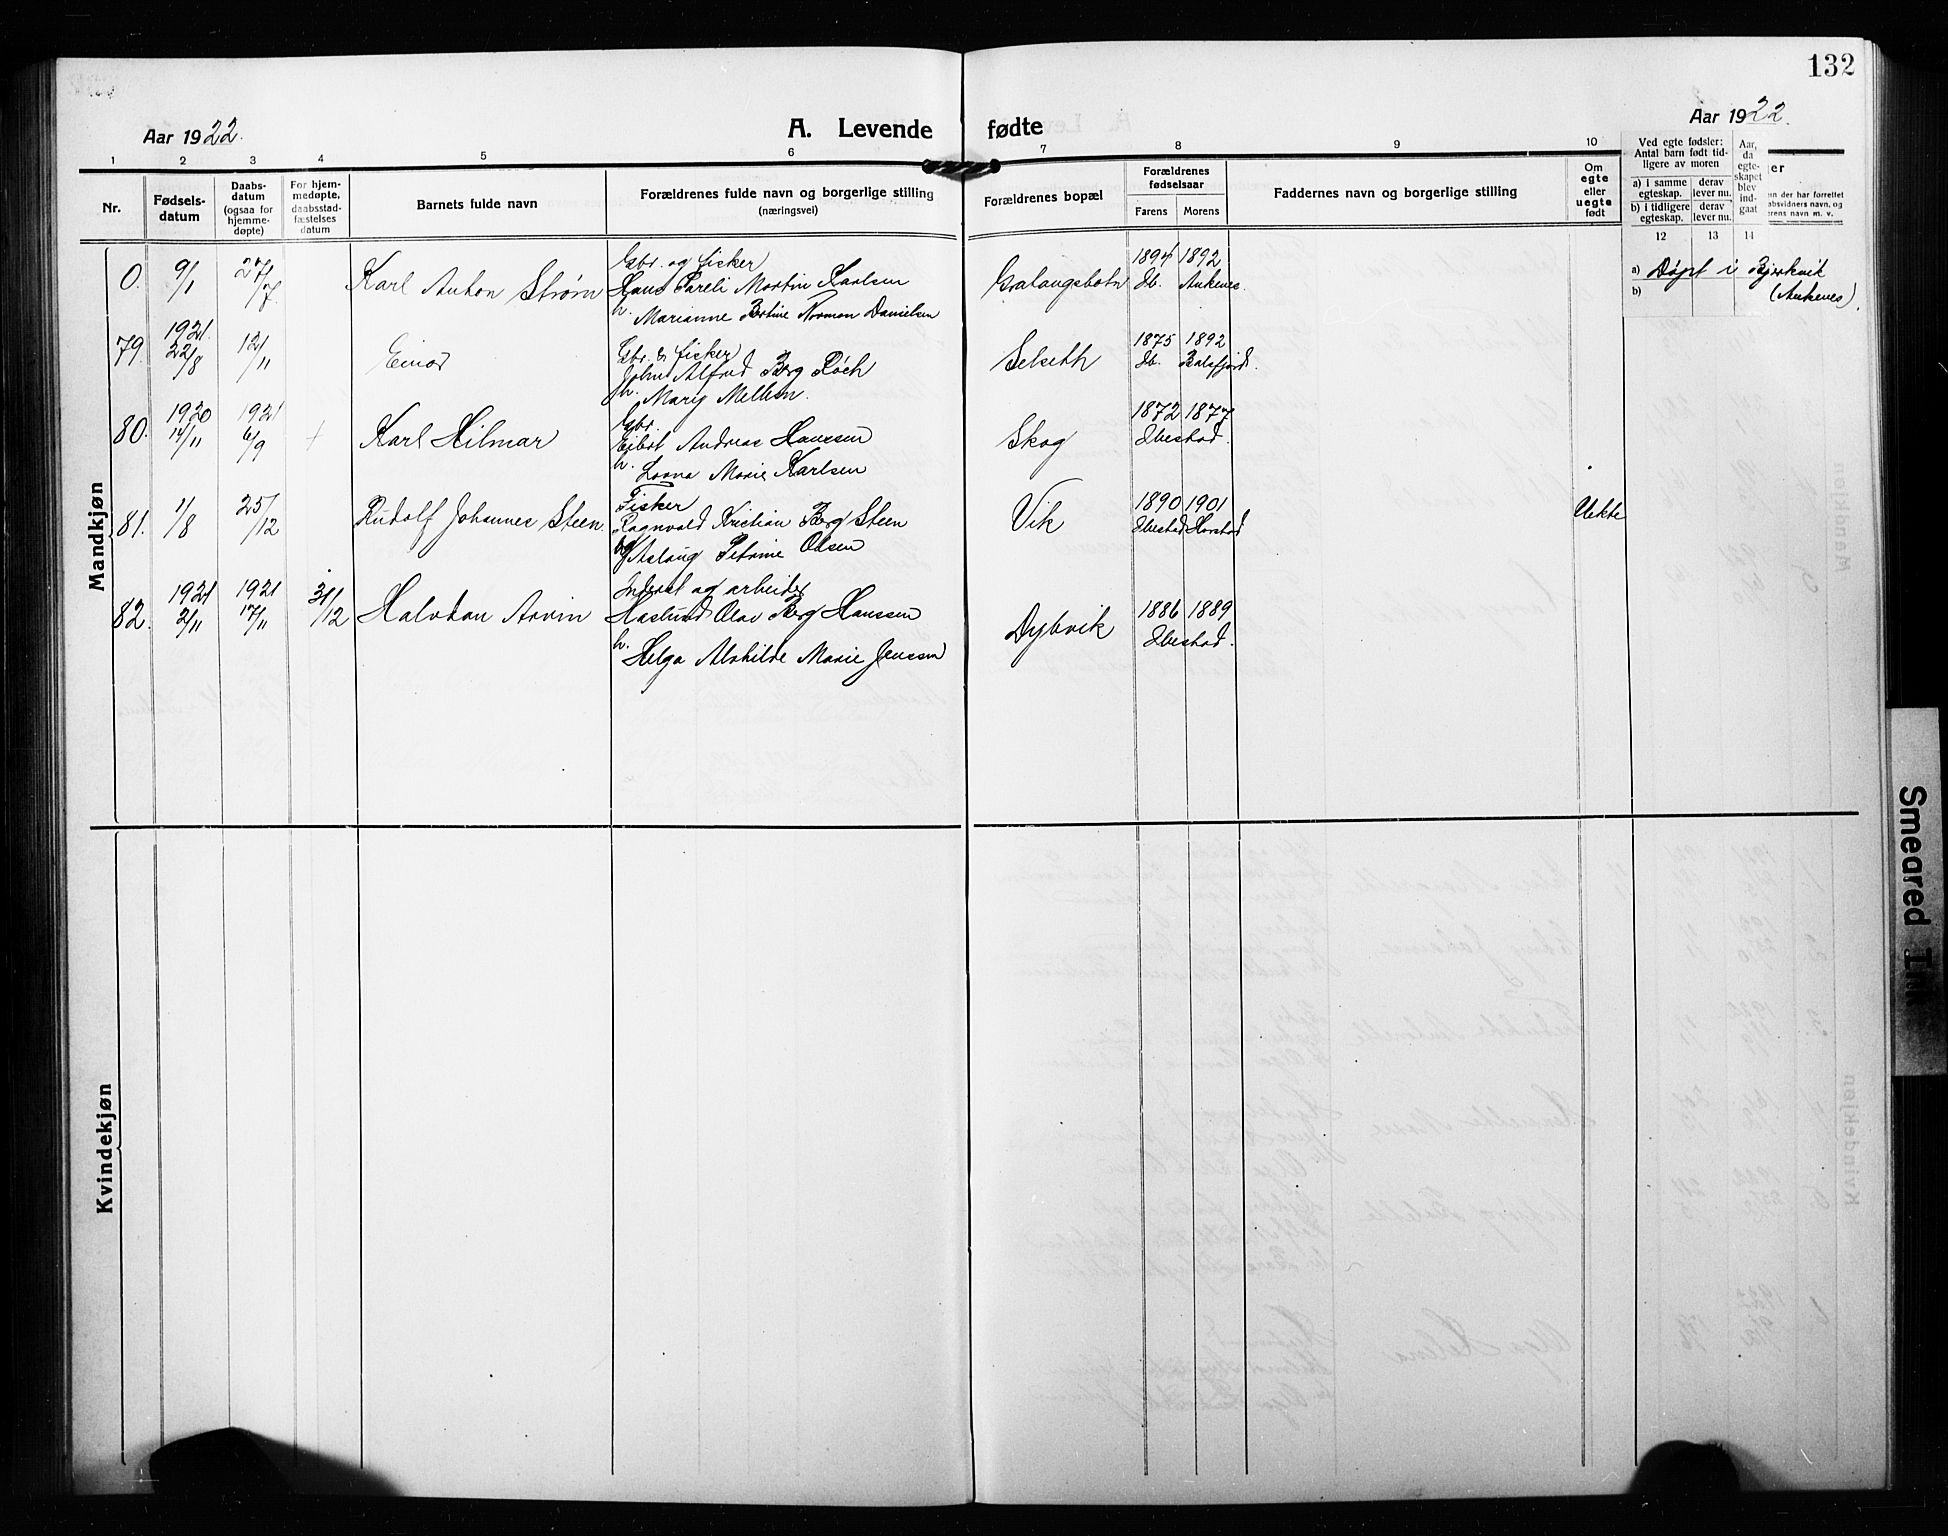 132
Aar 1922.
A. Levende fødte
Aar 1922.
1 2 3 4 5 6 7 8 9 10
Nr.
Fødsels-
datum
Daabs-
datum
(ogsaa for
hjemme-
døpte)
For hjem-
medøpte,
daabsstad-
fæstelses
datum
Barnets fulde navn
Forældrenes fulde navn og borgerlige stilling
(næringsvei)
Forældrenes bopæl
Forældrenes
fødselsaar
Farens Morens
Faddernes navn og borgerlige stilling
Om
egte
eller
uegte
født
Ved egte fødsler:
Antal barn født tid-
ligere av moren
a) i samme
egteskap.
derav
lever nu.
b) i tidligere
egteskap.
derav
lever nu.
Aar,
da
egte-
skapet
blev
ind-
gaat
12 13 14
er
en der har forrettet
absvidners navn, og
erens navn m. v.
Mandkjøn
0. 9/1 27/7 Karl Anton Strøm
Gbr. og fisker
Hans Pareli Martin Karlsen
h. Marianne Bertine Norman Danielsen
Gratangsbotn
1894 1892
Ib. Ankenes.
a) Døpt i Bjerkvik
b) (Ankenes).
79. 1921 22/8 12/11 Einar
Gbr. & fisker
John Alfred Berg Röch
h. Mary
Selseth
1875 1892
Ib. Balsfjord.
80. 1920 14/11 1921 6/9 + Karl Hilmar
Gbr.
Eibert Andreas Hanssen
h. Lorna Marie Karlsen
Skog
1872 1877
Ibestad.
81. 1/8 25/12 Rudolf Johannes Steen
Fisker
Ragnvald Kristian Berg Steen
og Aslaug Petrine Olsen
Vik
1890 1901
Ibestad Harstad
Uekte
82. 1921 2/11 1921 17/11 31/12 Halvdan Arvin
Inderst og arbeider
Haslund Olai Berg Hanssen
h. Helga Alvhilde Marie Jenssen
Dybvik
1886 1889
Ibestad.
Kvindekjøn
Smeared Ink